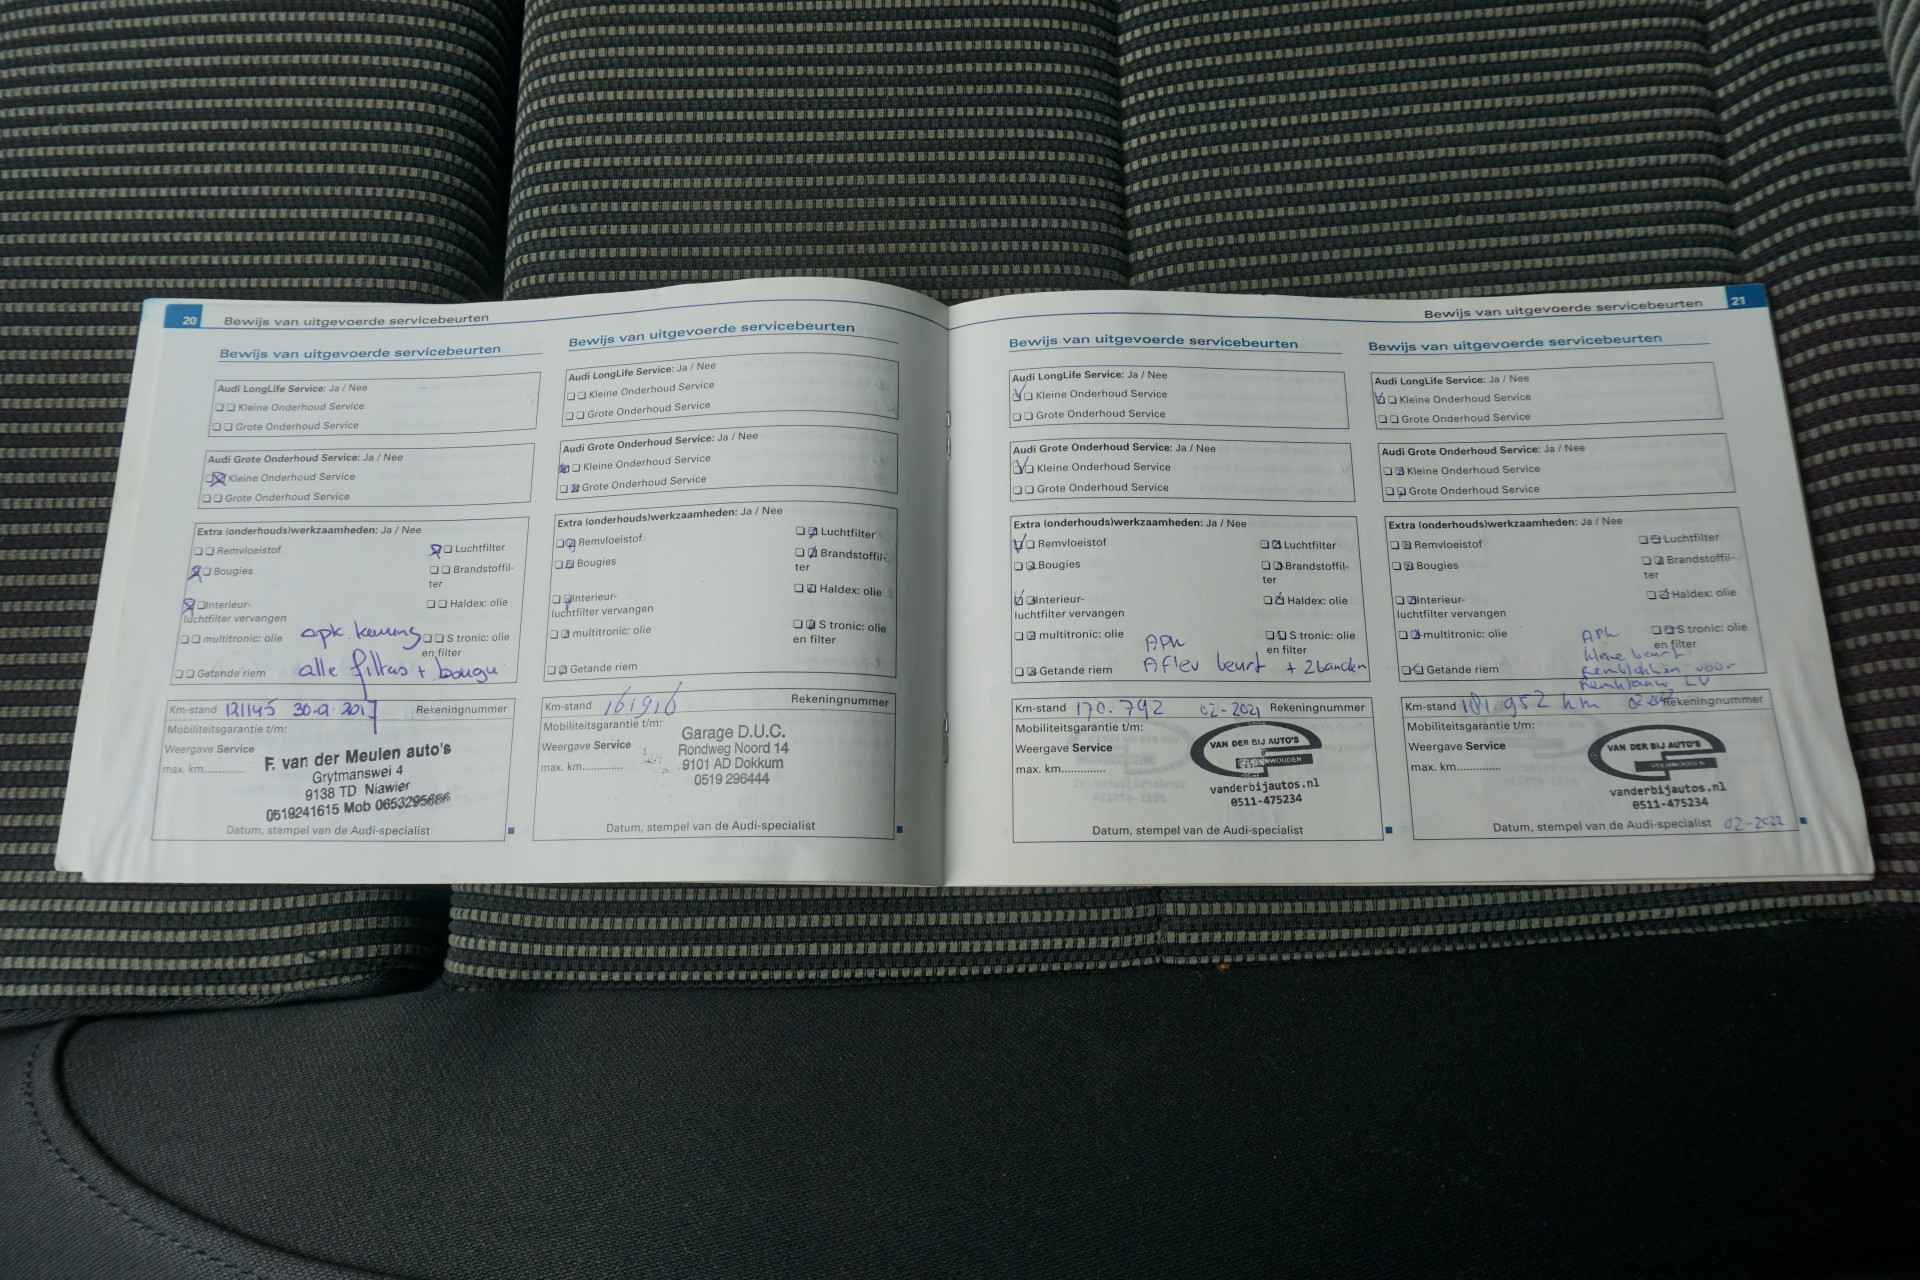 20 Bewijs van uitgevoerde servicebeurten
Bewijs van uitgevoerde servicebeurten
Audi LongLife Service: Ja / Nee
Kleine Onderhoud Service
Grote Onderhoud Service
Audi Grote Onderhoud Service: Ja / Nee
Kleine Onderhoud Service
Grote Onderhoud Service
Extra (onderhouds)werkzaamheden: Ja / Nee
Remvloeistof
Luchtfilter
Bougies
Brandstoffil-
ter
Interieur-
luchtfilter vervangen
Haldex: olie
multitronic: olie
apk keuring
S tronic: olie
en filter
Getande riem
alle filters + bougie
Km-stand 121145 30-9-2017 Rekeningnummer
Mobiliteitsgarantie t/m:
Weergave Service
max. km.............
F. van der Meulen auto's
Grytmanswei 4
9138 TD Niawier
0519241615 Mob 0653295666
Datum, stempel van de Audi-specialist
Bewijs van uitgevoerde servicebeurten
Audi LongLife Service: Ja / Nee
Kleine Onderhoud Service
Grote Onderhoud Service
Audi Grote Onderhoud Service: Ja / Nee
Kleine Onderhoud Service
Grote Onderhoud Service
Extra (onderhouds)werkzaamheden: Ja / Nee
Remvloeistof
Luchtfilter
Bougies
Brandstoffil-
ter
Interieur-
luchtfilter vervangen
Haldex: olie
multitronic: olie
S tronic: olie
en filter
Getande riem
Km-stand 161916 Rekeningnummer
Mobiliteitsgarantie t/m:
Weergave Service
max. km.............
Garage D.U.C.
Rondweg Noord 14
9101 AD Dokkum
0519 296444
Datum, stempel van de Audi-specialist
Bewijs van uitgevoerde servicebeurten 21
Bewijs van uitgevoerde servicebeurten
Audi LongLife Service: Ja / Nee
Kleine Onderhoud Service
Grote Onderhoud Service
Audi Grote Onderhoud Service: Ja / Nee
Kleine Onderhoud Service
Grote Onderhoud Service
Extra (onderhouds)werkzaamheden: Ja / Nee
Remvloeistof
Luchtfilter
Bougies
Brandstoffil-
ter
Interieur-
luchtfilter vervangen
Haldex: olie
multitronic: olie
APK
S tronic: olie
en filter
Getande riem
Aflev beurt + 2 banden
Km-stand 170.792 02-2021 Rekeningnummer
Mobiliteitsgarantie t/m:
Weergave Service
max. km.............
VAN DER BIJ AUTO'S
vanderbijautos.nl
0511-475234
Datum, stempel van de Audi-specialist
Bewijs van uitgevoerde servicebeurten
Audi LongLife Service: Ja / Nee
Kleine Onderhoud Service
Grote Onderhoud Service
Audi Grote Onderhoud Service: Ja / Nee
Kleine Onderhoud Service
Grote Onderhoud Service
Extra (onderhouds)werkzaamheden: Ja / Nee
Remvloeistof
Luchtfilter
Bougies
Brandstoffil-
ter
Interieur-
luchtfilter vervangen
Haldex: olie
multitronic: olie
APK
S tronic: olie
en filter
kleine beurt
Getande riem
Remblokken voor
Remklauw LV
Km-stand 181.952 km Rekeningnummer
Mobiliteitsgarantie t/m:
Weergave Service
max. km.............
VAN DER BIJ AUTO'S
vanderbijautos.nl
0511-475234
Datum, stempel van de Audi-specialist 02-2022